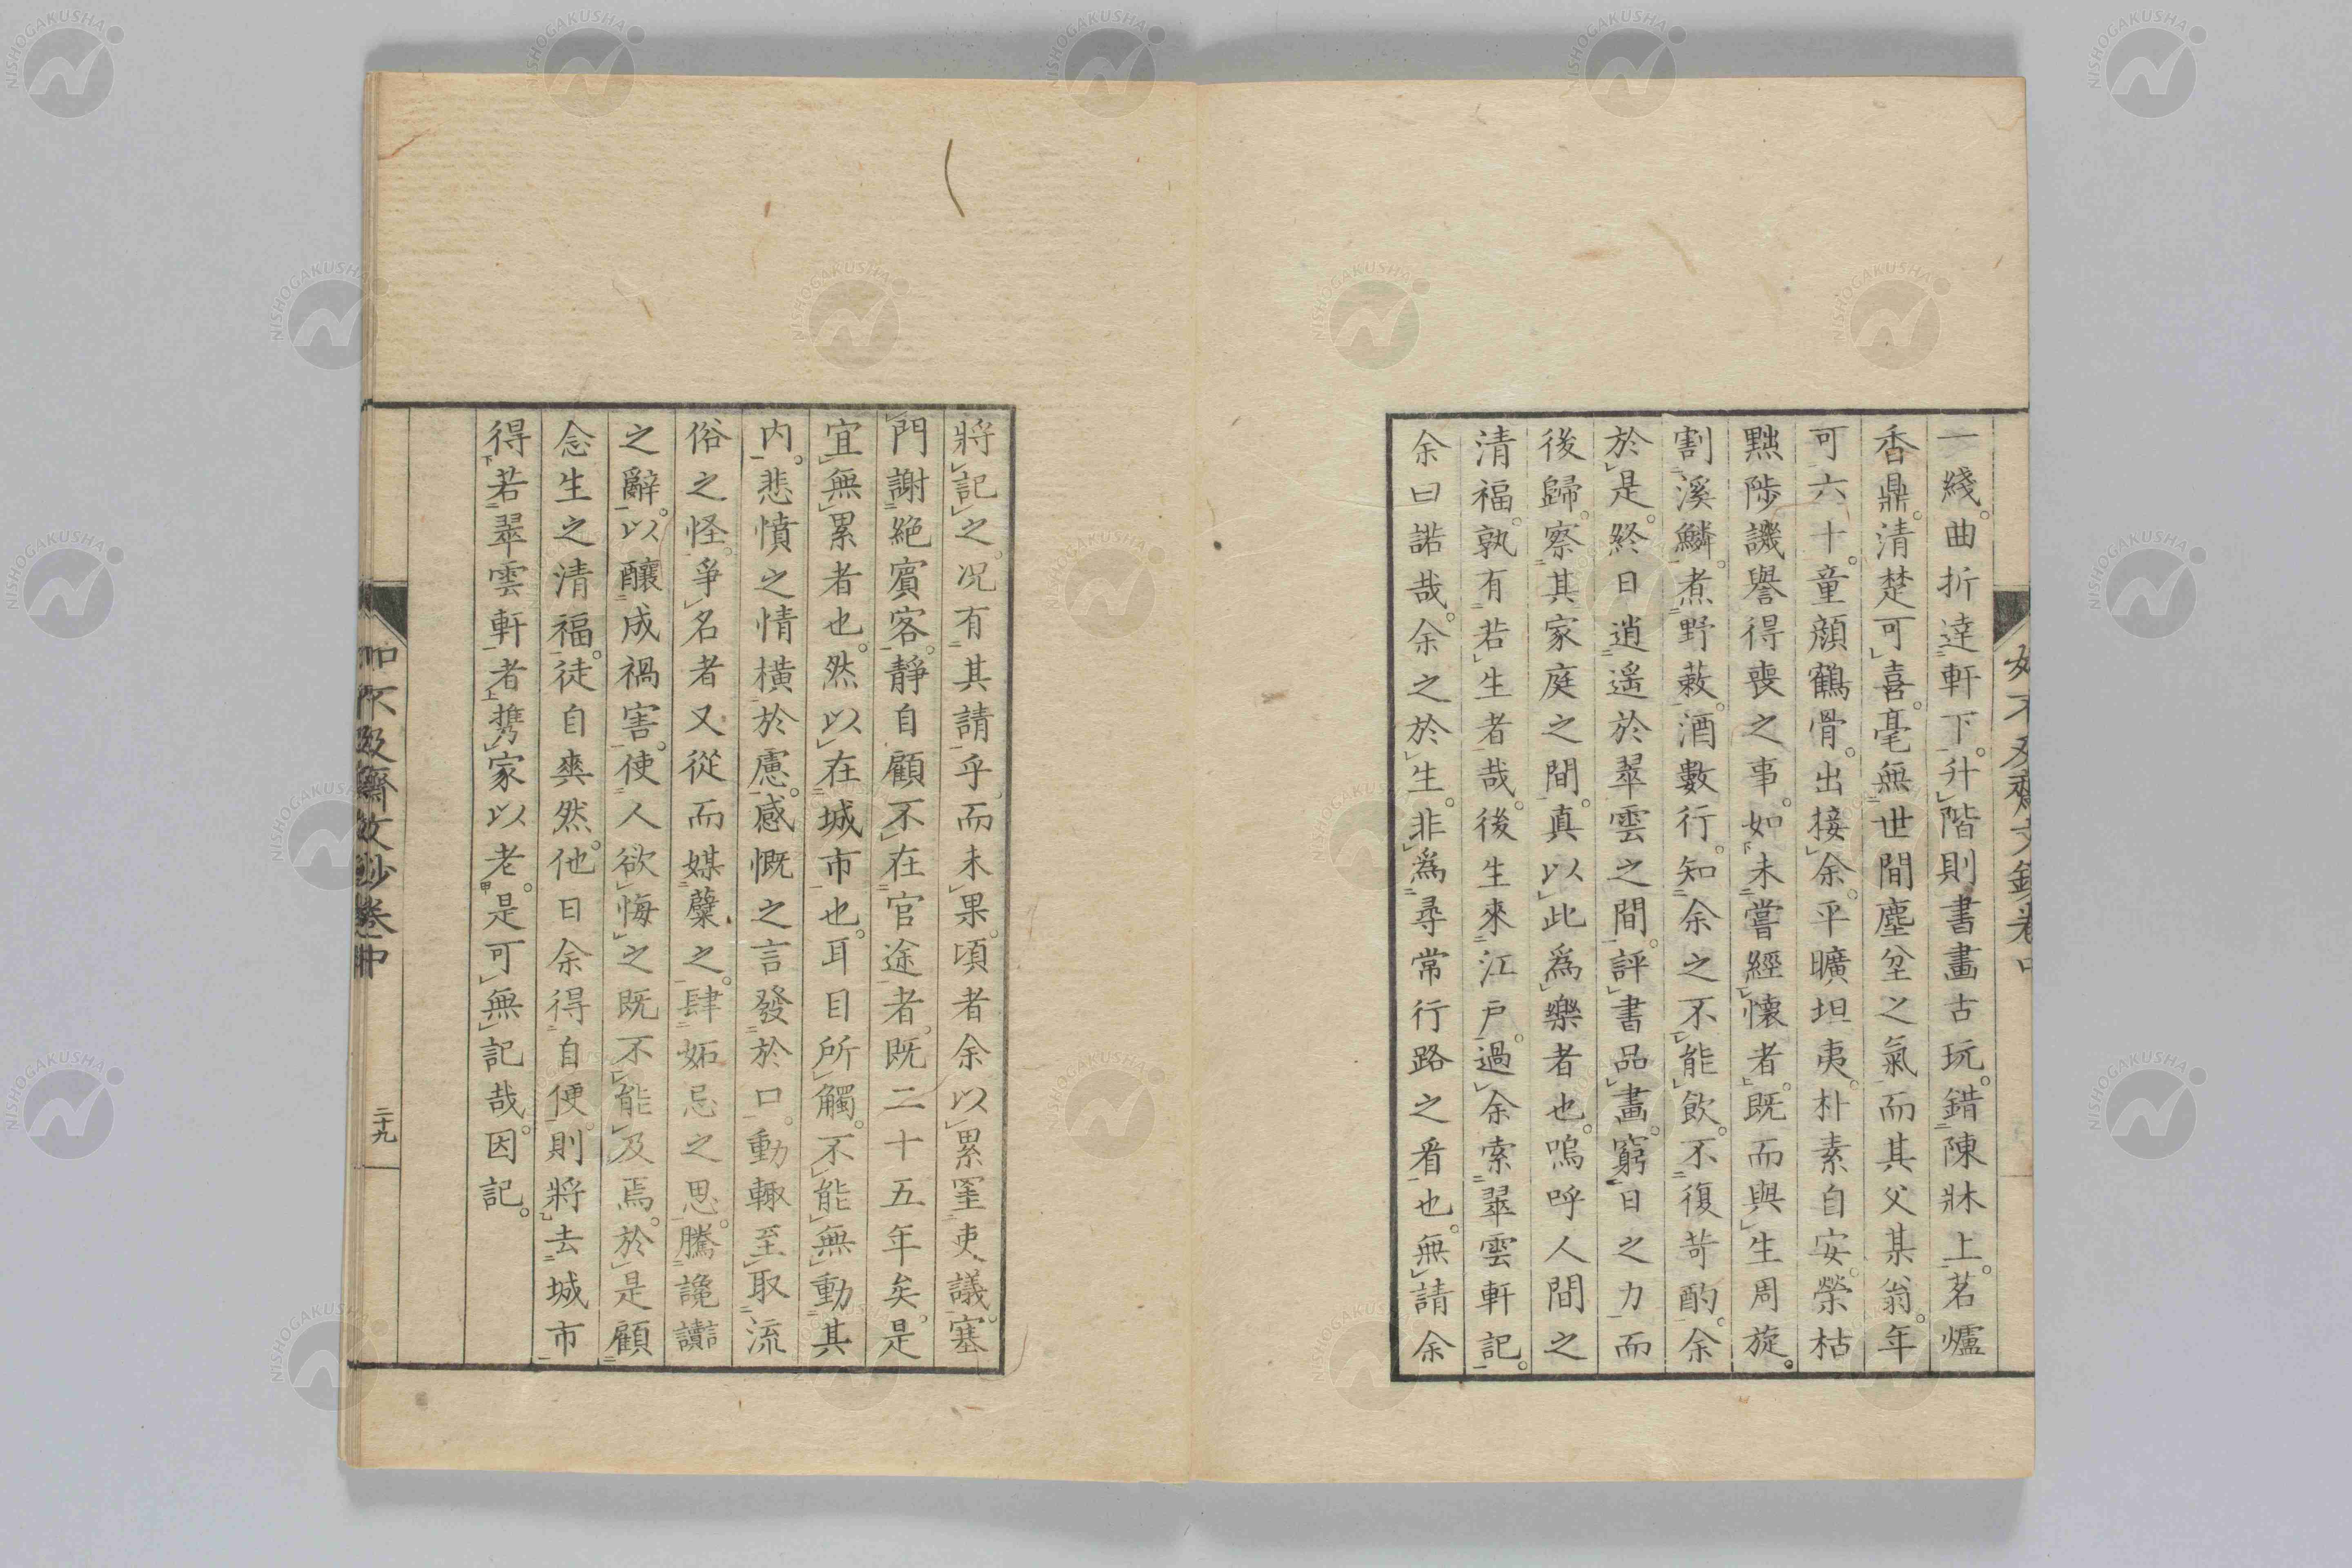 一綫。曲折達軒下。升階則書畫古玩。錯陳牀上。茗爐
香鼎。清楚可喜。毫無世間塵坌之氣而其父某翁。年
可六十。童顏鶴骨。出接余。平曠坦夷。朴素自安。榮枯
黜陟譏譽得喪之事。如未嘗經懷者。既而與生周旋。
割溪鱗。煮野蔌。酒數行。知余之不能飲。不復苛酌。余
於是。終日逍遥於翠雲之間。評書品畫。窮日之力而
後歸。察其家庭之間。真以此爲樂者也。嗚呼人間之
清福。孰有若生者哉。後生來江戸。過余索翠雲軒記。
余曰諾哉。余之於生。非爲尋常行路之看也。無請余
將記之。況有其請乎。而未果。頃者余以累罣吏議。塞
門謝絶賓客。靜自顧不在官途者。既二十五年矣。是
宜無累者也。然以在城市也。耳目所觸。不能無動其
内。悲憤之情橫於慮。感慨之言發於口。動輙至取流
俗之怪。爭名者又從而媒糵之。肆妬忌之思。騰讒讟
之辭。以釀成禍害。使人欲悔之既不能及焉。於是顧
念生之清福。徒自爽然。他日余得自便。則將去城市
得若翠雲軒者攜家以老。是可無記哉。因記。
如不及齋文鈔卷中
二十九